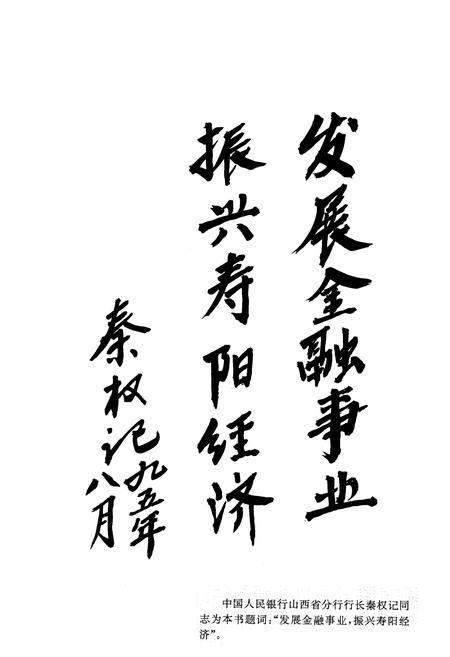 发展金融事业
振兴寿阳经济
秦权记
九五年
八月
中国人民银行山西省分行行长秦权记同
志为本书题词：“发展金融事业，振兴寿阳经
济”。